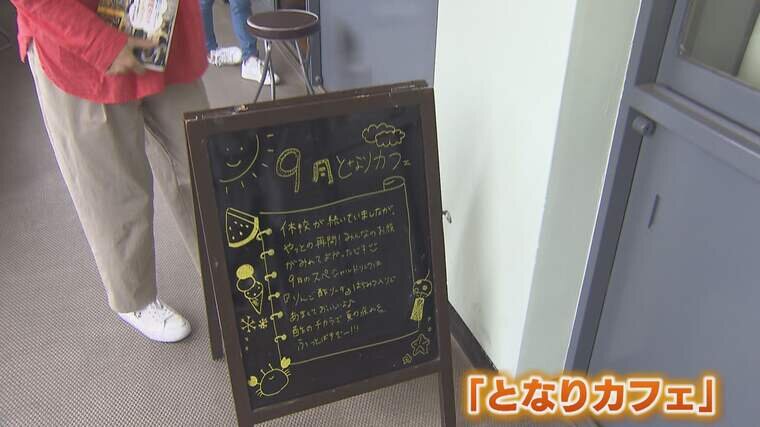 9月となりカフェ
休校が続いていましたが、
やっとの再開!みんなのお顔
がみれてよかったです
9月のスペシャルドリンクは
『りんご酢ソーダ』はちみつ入りで
あまくておいしいよ♪
酢のチカラで夏の疲れを
ふっとばすぞー!!!
「となりカフェ」